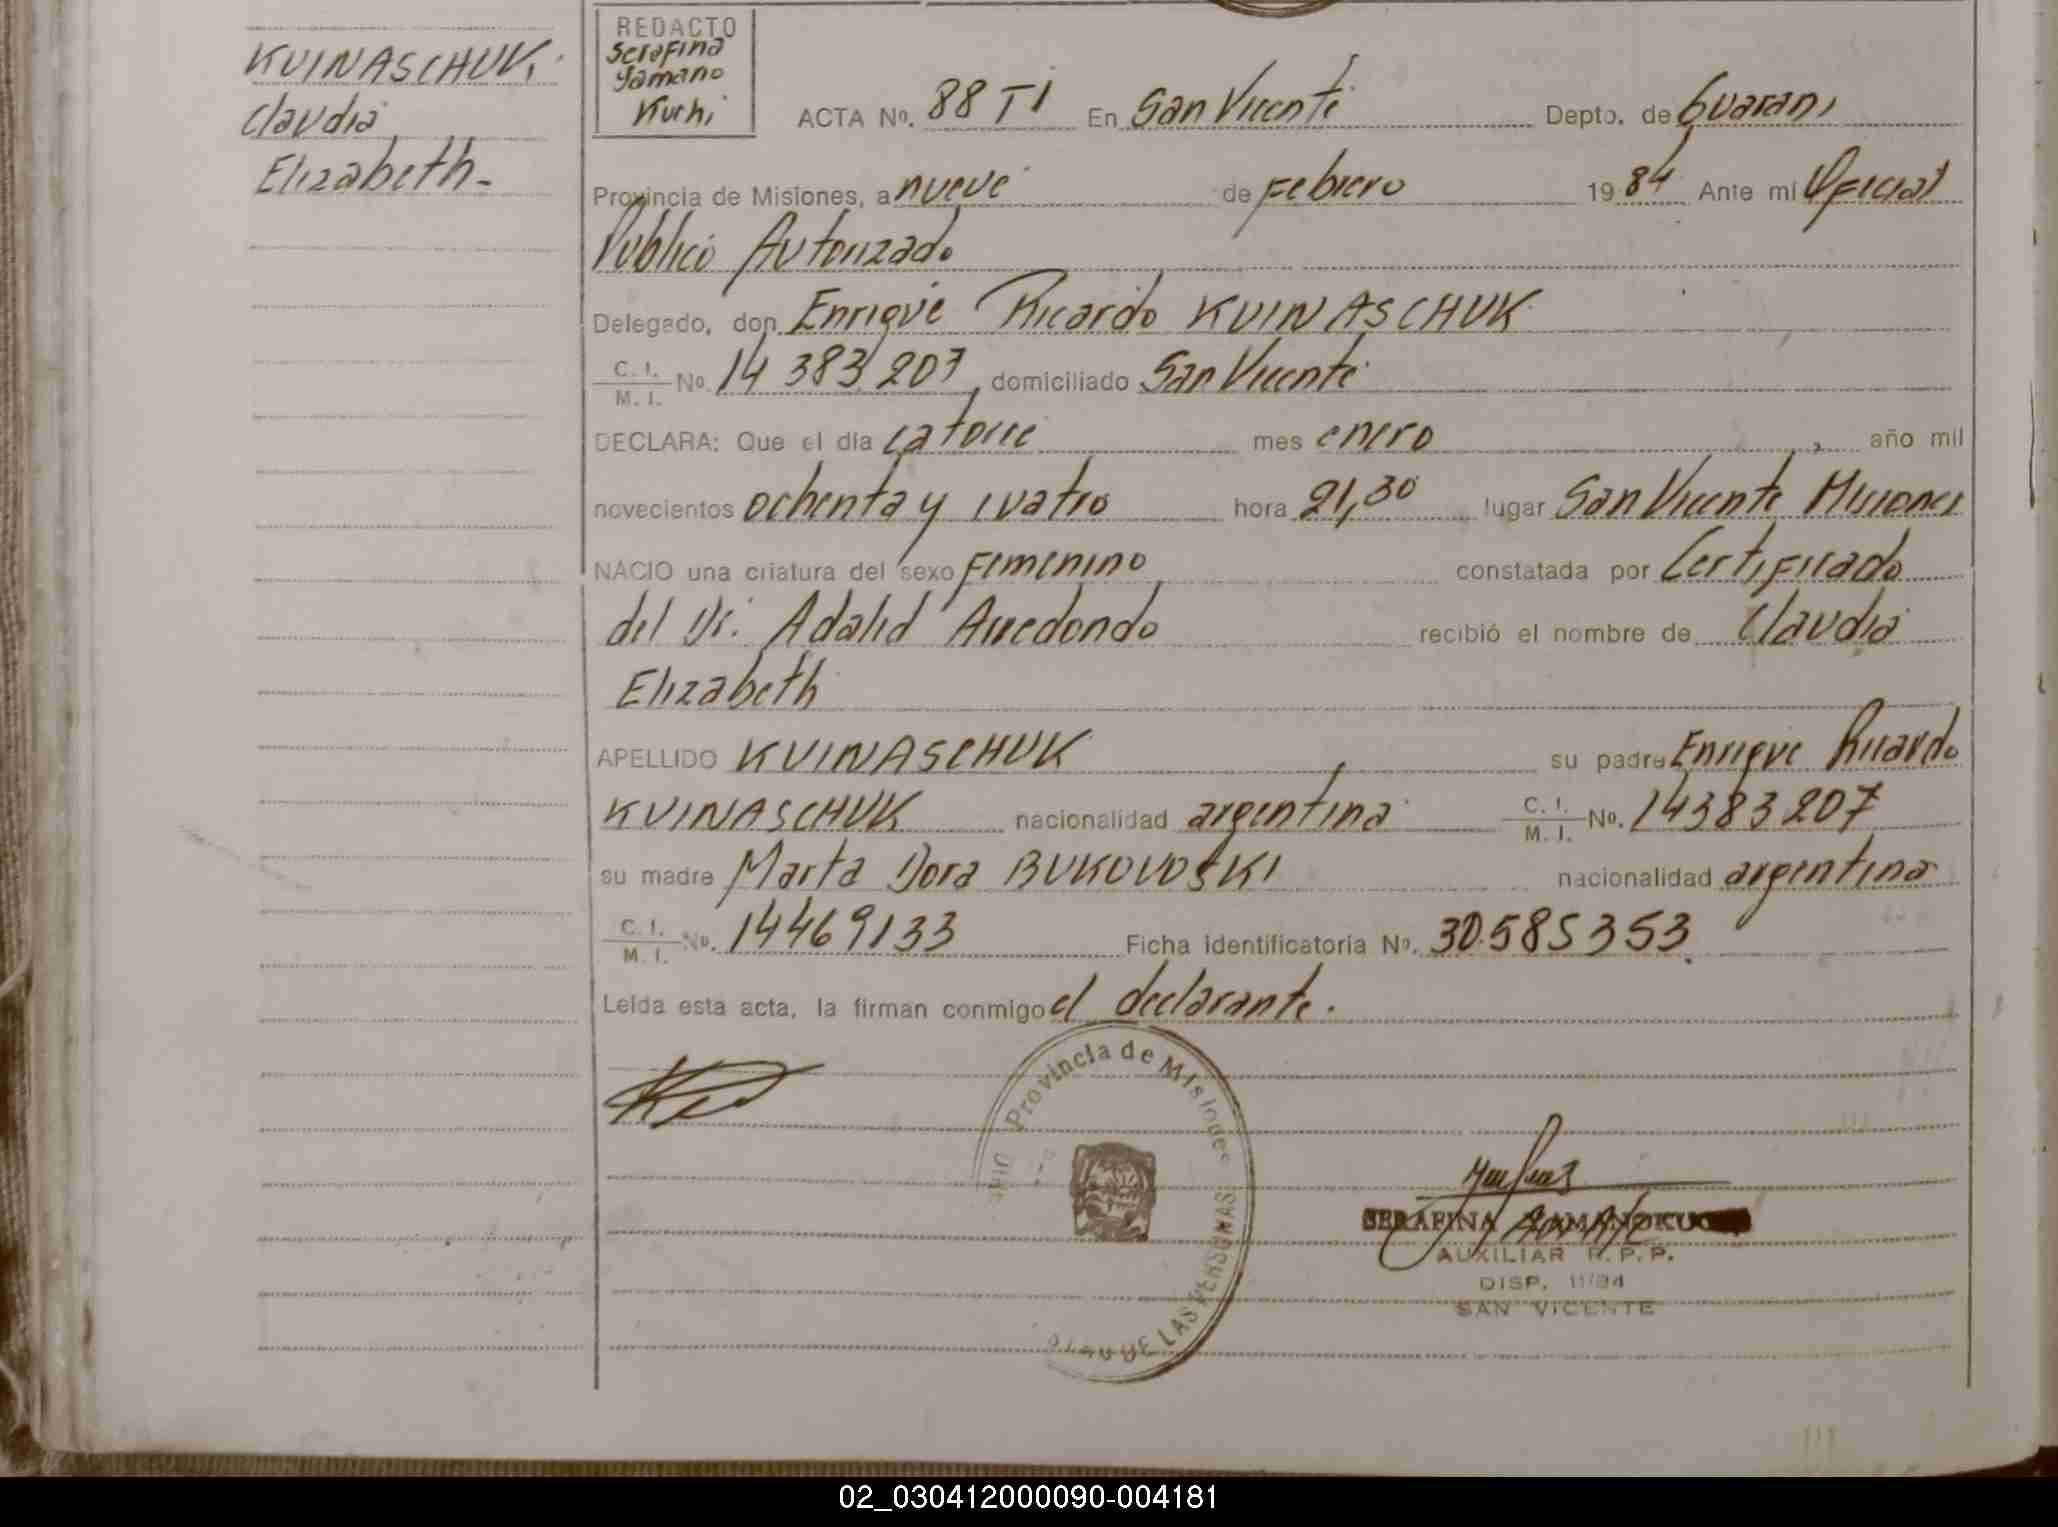 KUINASCHUK,
Claudia
Elizabeth-
REDACTO
Serafina
Yamano
Kuchi
ACTA Nº. 88 TI En San Vicente Depto. de Guarani
Provincia de Misiones, a nueve de Febrero 1984 Ante mí Oficial
Publico Autorizado
Delegado, don Enrique Ricardo KUINASCHUK
C. I. / M. I. Nº. 14 383 207, domiciliado San Vicente
DECLARA: Que el día catorce mes enero, año mil
novecientos ochenta y cuatro hora 21,30 lugar San Vicente Misiones
NACIO una criatura del sexo Femenino constatada por Certificado
del Dr. Adalid Arredondo recibió el nombre de Claudia
Elizabeth
APELLIDO KUINASCHUK su padre Enrique Ricardo
KUINASCHUK nacionalidad argentina C. I. / M. I. Nº. 14383207
su madre Marta Dora BUKOVOSKI nacionalidad argentina
C. I. / M. I. Nº. 14469133 Ficha identificatoria Nº. 30.585353.
Leída esta acta, la firman conmigo el declarante.
Provincia de Misiones
DE LAS PERSONAS
SERAFINA YAMANO KUCHI
AUXILIAR R.P.P.
DISP. 11/84
SAN VICENTE
02_030412000090-004181